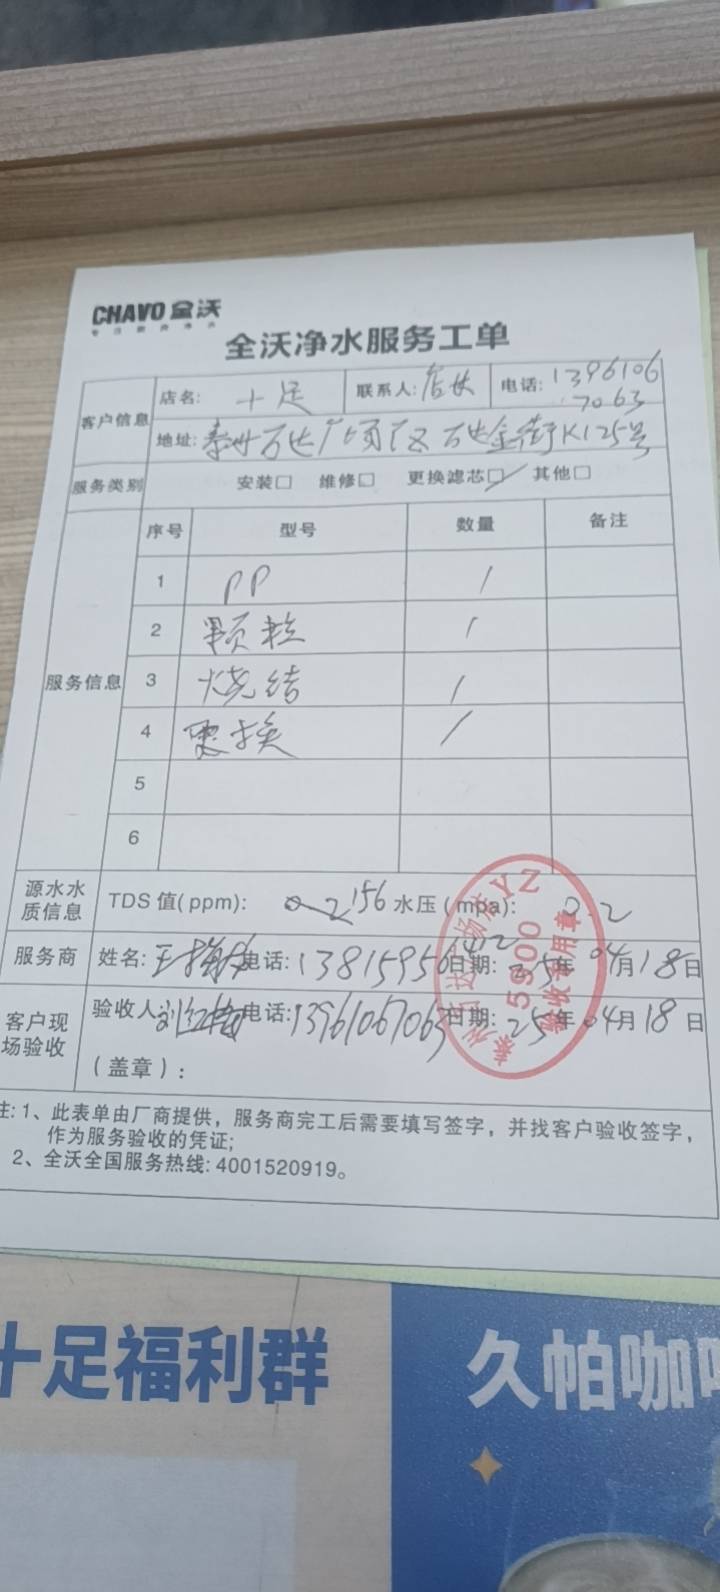 CHAVO 全沃
全沃净水服务工单
客户信息 店名: 十足 联系人: 店长 电话: 1396106
7063
地址: 泰州万达广场 万达金街K125号
服务类别 安装□ 维修□ 更换滤芯☑ 其他□
序号 型号 数量 备注
服务信息
1 PP 1
2 颗粒 1
3 烧结 1
4 更换 1
5
6
源水水质信息 TDS 值(ppm): 156 水压(mpa): 0.2
服务商 姓名: 电话: 13815956412 日期: 25年04月18日
客户现场验收 验收人 刘红梅 电话: 13961067063 日期: 25年04月18日
(盖章):
5900
验收专用章
注: 1、此表单由厂商提供，服务商完工后需要填写签字，并找客户验收签字，
作为服务验收的凭证;
2、全沃全国服务热线: 4001520919。
十足福利群
久帕咖